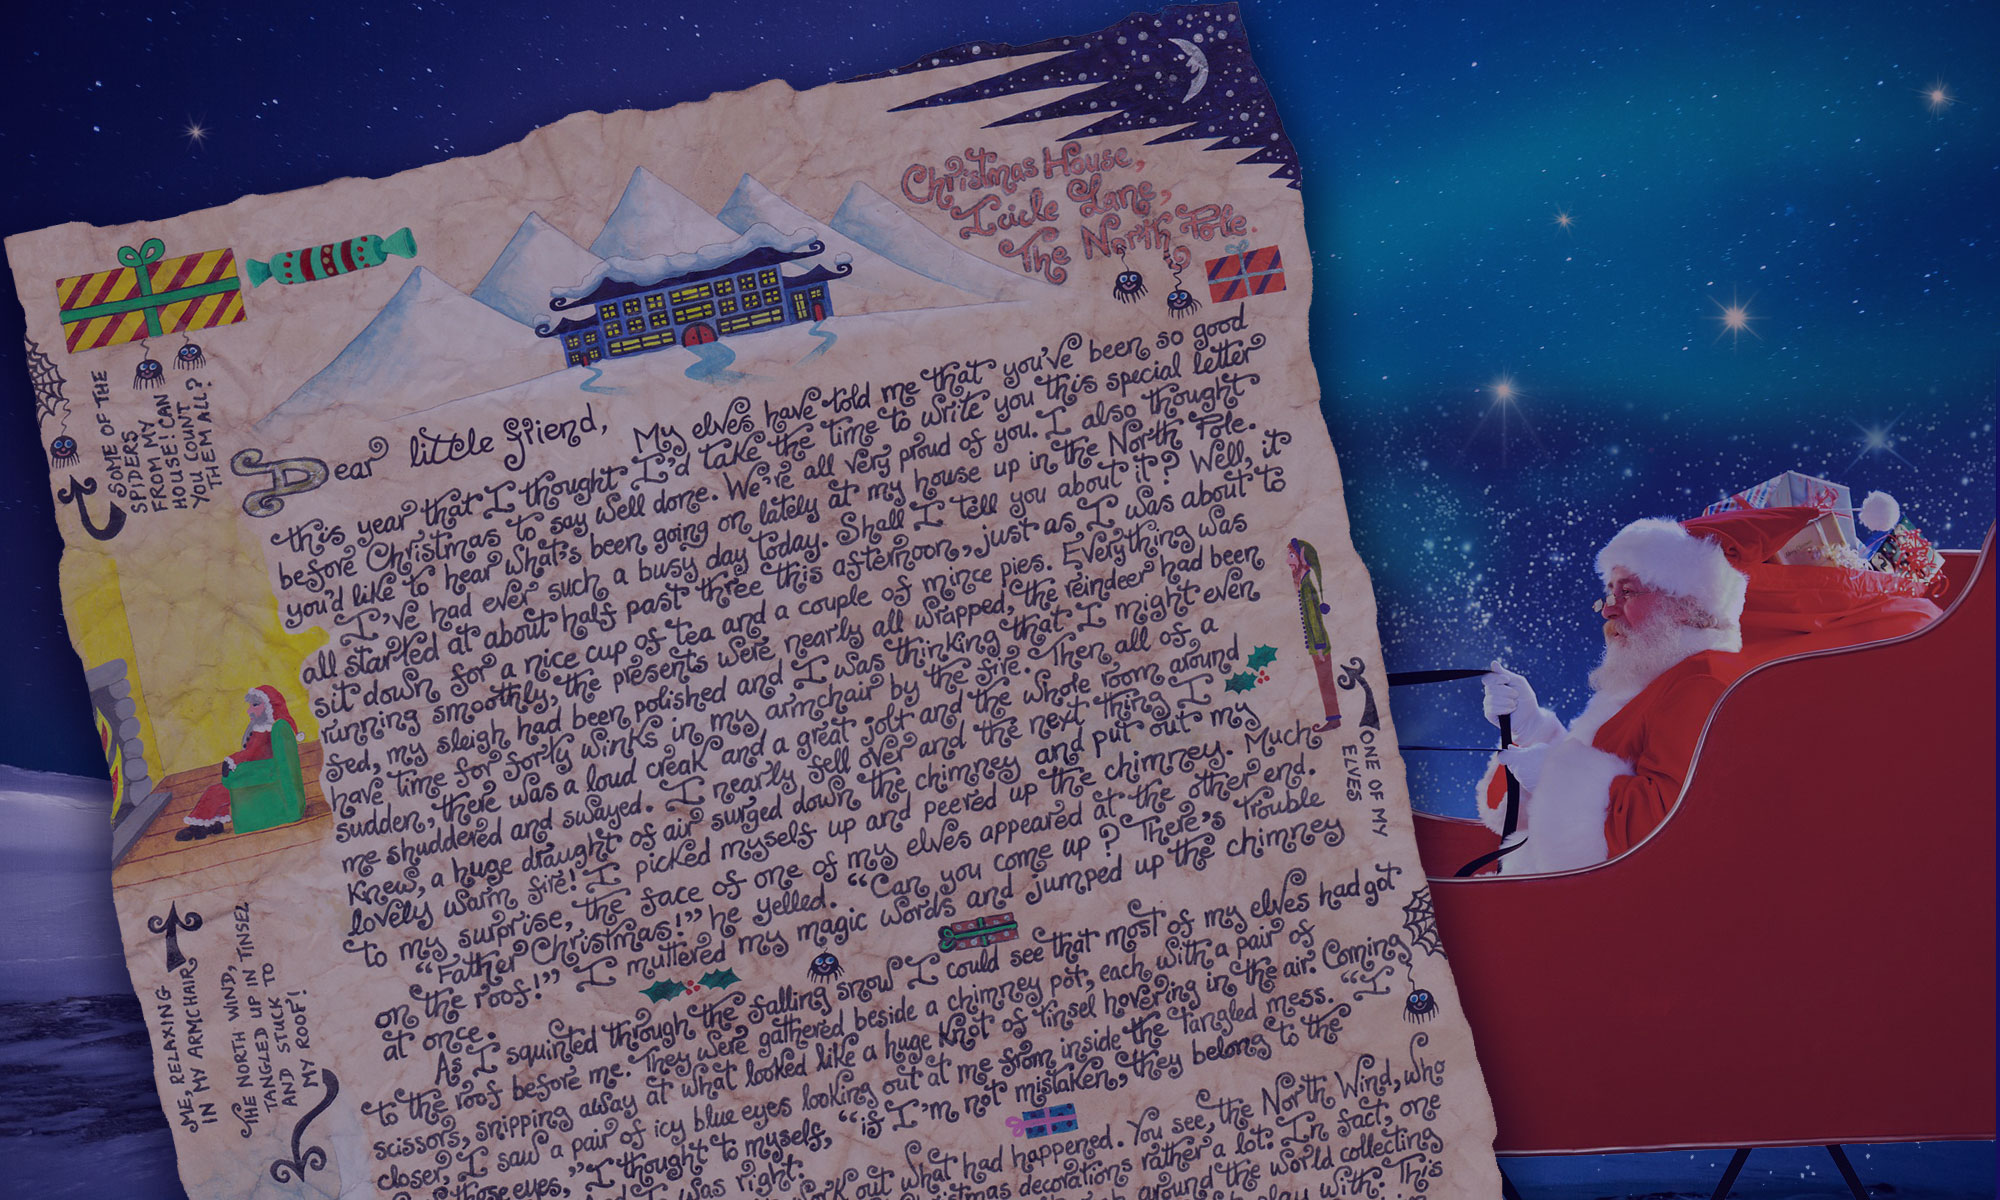 Christmas House,
Icicle Lane,
The North Pole.
SOME OF THE
SPIDERS
FROM MY
HOUSE! CAN
YOU COUNT
THEM ALL?
Dear little friend,
My elves have told me that you've been so good
this year that I thought I'd take the time to write you this special letter
before Christmas to say well done. We're all very proud of you. I also thought
you'd like to hear what's been going on lately at my house up in the North Pole.
I've had ever such a busy day today. Shall I tell you about it? Well, it
all started at about half past three this afternoon, just as I was about to
sit down for a nice cup of tea and a couple of mince pies. Everything was
running smoothly, the presents were nearly all wrapped, the reindeer had been
fed, my sleigh had been polished and I was thinking that I might even
have time for forty winks in my armchair by the fire. Then all of a
sudden, there was a loud creak and a great jolt and the whole room around
me shuddered and swayed. I nearly fell over and the next thing I
knew, a huge draught of air surged down the chimney and put out my
lovely warm fire! I picked myself up and peered up the chimney. Much
to my surprise, the face of one of my elves appeared at the other end.
"Father Christmas!" he yelled. "Can you come up? There's trouble
on the roof!" I muttered my magic words and jumped up the chimney
at once.
As I squinted through the falling snow I could see that most of my elves had got
to the roof before me. They were gathered beside a chimney pot, each with a pair of
scissors, snipping away at what looked like a huge knot of tinsel hovering in the air. Coming
closer, I saw a pair of icy blue eyes looking out at me from inside the tangled mess. "I
those eyes," I thought to myself, "if I'm not mistaken, they belong to the
And I was right.
work out what had happened. You see, the North Wind, who
Christmas decorations rather a lot. In fact, one
around the world collecting
play with. This
ONE OF MY
ELVES
ME, RELAXING
IN MY ARMCHAIR
THE NORTH WIND,
TANGLED UP IN TINSEL
AND STUCK TO
MY ROOF!